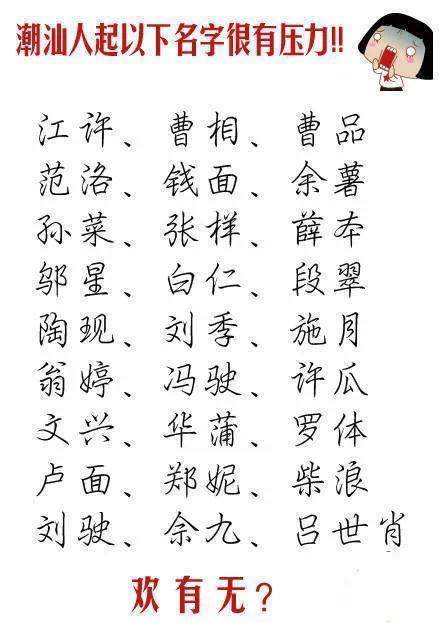 潮汕人起以下名字很有压力!!
江许、曹相、曹品
范洛、钱面、余薯
孙菜、张样、薛本
邬星、白仁、段翠
陶现、刘季、施月
翁婷、冯驶、许瓜
文兴、华蒲、罗体
卢面、郑妮、柴浪
刘驶、余九、吕世肖
欢有无?